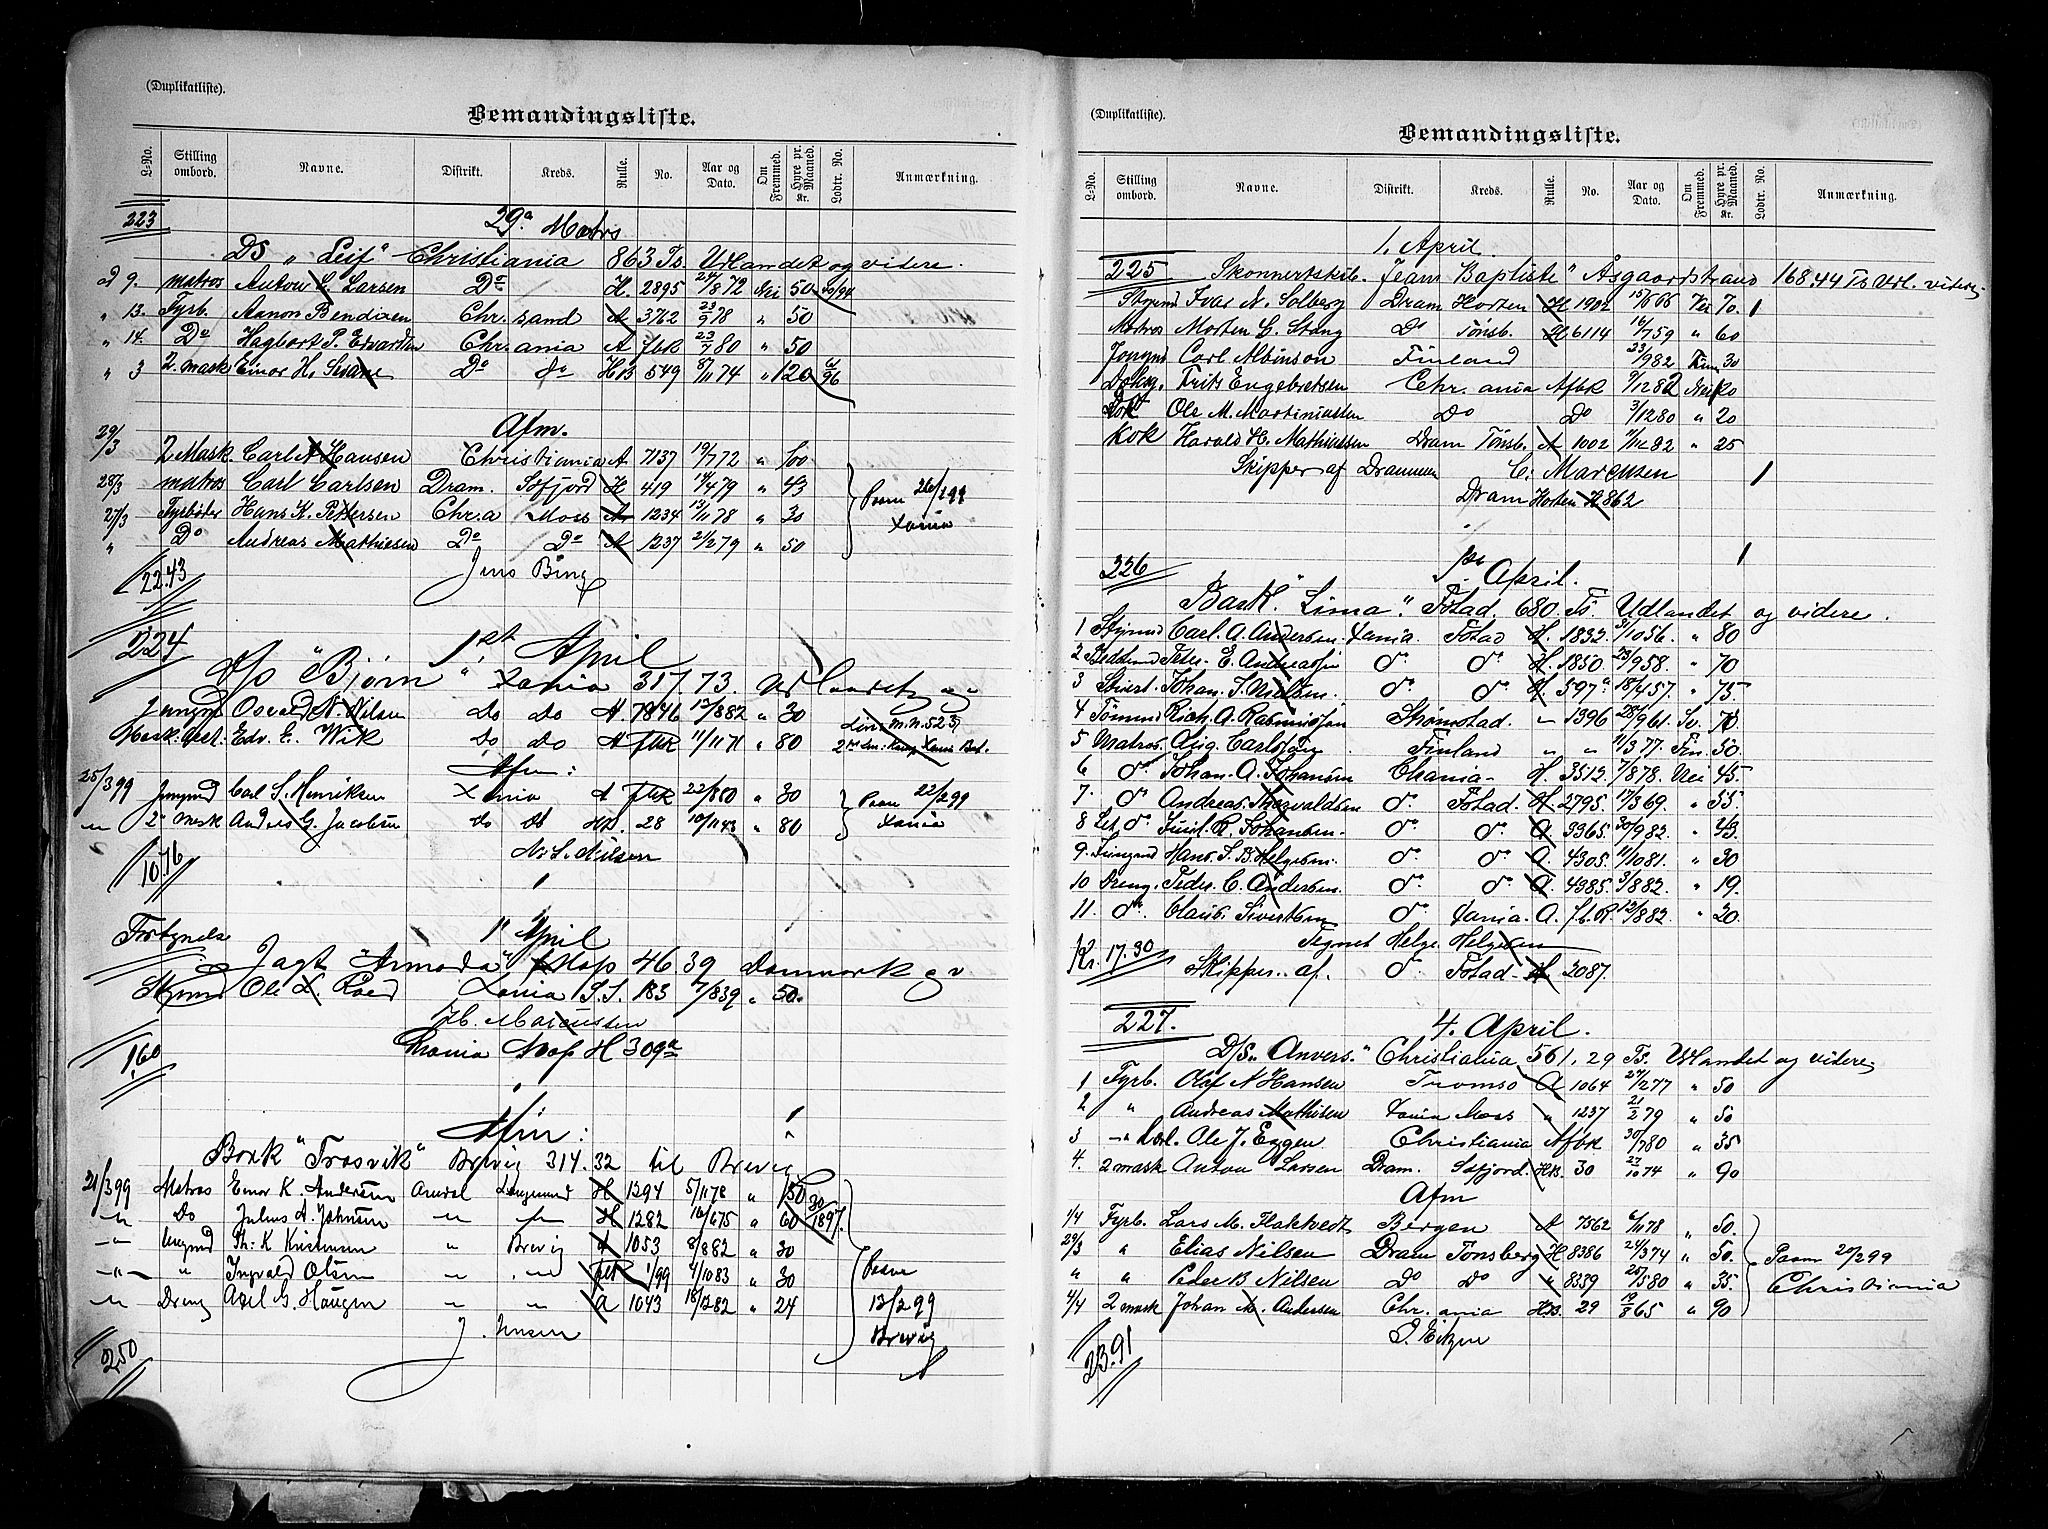 (Duplikatliste).
Bemandingsliste.
L-No. Stilling ombord. Navne. Distrikt. Kreds. Rulle. No. Aar og Dato. Om Fremmed. Hyre pr. Maaned. Kr. Lodtr. No. Anmærkning.
223 29de Marts
DS „Leif" Christiania 863 Ts. Udlandet og videre.
9. matros Anton Larsen Do H. 2895 24/8 72 Nei 50
„ 13. Fyrb. Aanon Bendixen Chr.sand A 3762 23/9 78 „ 50
„ 14. Do Hagbart P. Edvardsen Chr.ania A fbk 23/7 80 „ 50
„ 3 2. mask Einar H. Svane Do do HB 549 8/11 74 „ 120
Afm.
29/3 2 Mask. Carl Hansen Christiania A 7137 19/7 72 „ 100
28/3 matros Carl Carlsen Dram. Sfjord H 419 14/4 79 „ 43
27/3 Fyrbøder Hans K. Pettersen Chr.a Moss A 1234 13/11 78 „ 30 Paam 26/2 99 Xania
„ Do Andreas Mathiesen Do Do A 1237 21/2 79 „ 50
22.43 Jens Bing
224 1st April
D/s "Bjørn" Xania 317.73. Udlandet og
Jungm Osvald N. Nilsen Do Do A. 7846 12/8 82 „ 30
Mask.ass. Edv. E. Wik Do Do A fbk 11/11 71 „ 80
Afm:
25/3 99 Jungmd Carl S. Henriksen Xania A fbk 22/8 80 „ 30 Paam 22/2 99
2 Mask Anders G. Jacobsen do do HB. 28 10/11 43 „ 80 Xania
10.76 N. S. Nilsen
1st April
Fortynelse
Jagt "Armada" Moss 46.39 Danmark o v
Styrmd Ole L. Roed Xania S.S. 183 7/8 39 „ 50.
H. Marcussen
1.60 Xania Moss H 309a
Afm:
Bark "Frosvik" Brevig 314.32 til Brevig
21/3 99 Matros Einar K. Andersen Arendal Langesund H 1294 5/11 78 „ 50
Do Julius A. Johnsen H 1282 16/6 75 „ 60
Ungmd Th. K Kristensen „ Brevig A 1053 8/8 82 „ 30
„ Ingvald Olsen fbk 1/99 4/10 83 „ 30 Paam
Dreng Axel G. Haugen A 1043 18/12 82 „ 24 13/2 99
2.50 J. Jensen Brevig
(Duplikatliste).
Bemandingsliste.
L-No. Stilling ombord. Navne. Distrikt. Kreds. Rulle. No. Aar og Dato. Om Fremmed. Hyre pr. Maaned. Kr. Lodtr. No. Anmærkning.
1. April.
225 Skonnertskib. "Jean Baptiste" Åsgaardstrand 168.44 Ts Url. videre
Styrmd Ivar N. Solberg Dram Horten H 1902 15/6 66 Nei 70.
Matros Morten C. Stang Do Tønsb. H 6114 16/7 59 „ 60
Jungmd Carl Albinson Finland 23/9 82 Finn 30
Dækg. Frits Engebretsen Chr.ania Afbk 9/12 82 Nei 20
Ole M. Martiniussen Do Do 3/12 80 „ 20
Kok Harald H. Mathiassen Dram Tønsb. A 1002 92 „ 25
Skipper af Drammen C. Marcusen
Dram Horten H 862
226 1ste April.
Bark. "Lima". Fstad 680. Ts Udlandet og videre.
1 Styrmd Carl. A. Andersen. Xania. Fstad H. 1832. 3/10 56. „ 80
2 Bedstmd Peter. E. Andreassen do do H. 1850. 23/9 58. „ 70
3 Stuert. Johan. S. Nielsen. do do H. 397a 18/4 57. „ 75
4 Tømmd Rich. A. Rasmussen Strømstad. 1396 28/9 61. Sv. 70.
5 Matros. Aug. Carlsten. Finland „ „ 11/3 77. Fin. 50.
6 do Johan. A. Johansen Chania- H. 3512. 7/8 78. Nei 45.
7. do Andreas. Thorvaldsen do. Fstad. H 2795. 17/3 69. „ 55.
8 Let do Emil. R. Johansen. do. do. A. 3365. 30/9 82. „ 43.
9. Jungmd Hans. S. B. Helgesen. do. do. A. 4305. 11/10 81. „ 30
10 Dreng. Peder. C. Andersen. do. do. A 4385. 3/8 82. „ 19.
11. do. Claus. Sivertsen do. Xania. A. f.b.R. 12/8 82. „ 20.
Tegnet Helge Helgesen
Kr. 17.30 Skipper. af. do Fstad H 2087.
227. 4. April.
D/S „Anvers." Christiania 561,29 Ts. Udlandet og videre
1 Fyrb. Olaf N Hansen Tromsø A 1064 27/2 77 „ 50
2 „ Andreas Mathisen Xania Moss „ 1237 21/2 79 „ 50
3 Ole J. Eggen Christiania Afbk 30/7 80 „ 35
4. 2 mask Anton Larsen Dram. Sfjord. HB. 30 27/10 74 „ 90
Afm
1/4 Fyrb. Lars M. Flakkedt Bergen A 7562 6/11 78 „ 50.
29/3 „ Elias Nilsen Dram Tønsberg H 8386 24/3 74 „ 50. Paam 20/2 99
„ „ Peder B Nilsen Do Do „ 8339 25/5 80 „ 35. Christiania
4/4 2 mask Johan M. Andersen Chr.ania HB. 29 19/8 65 „ 90
23.91 S. Eitzen